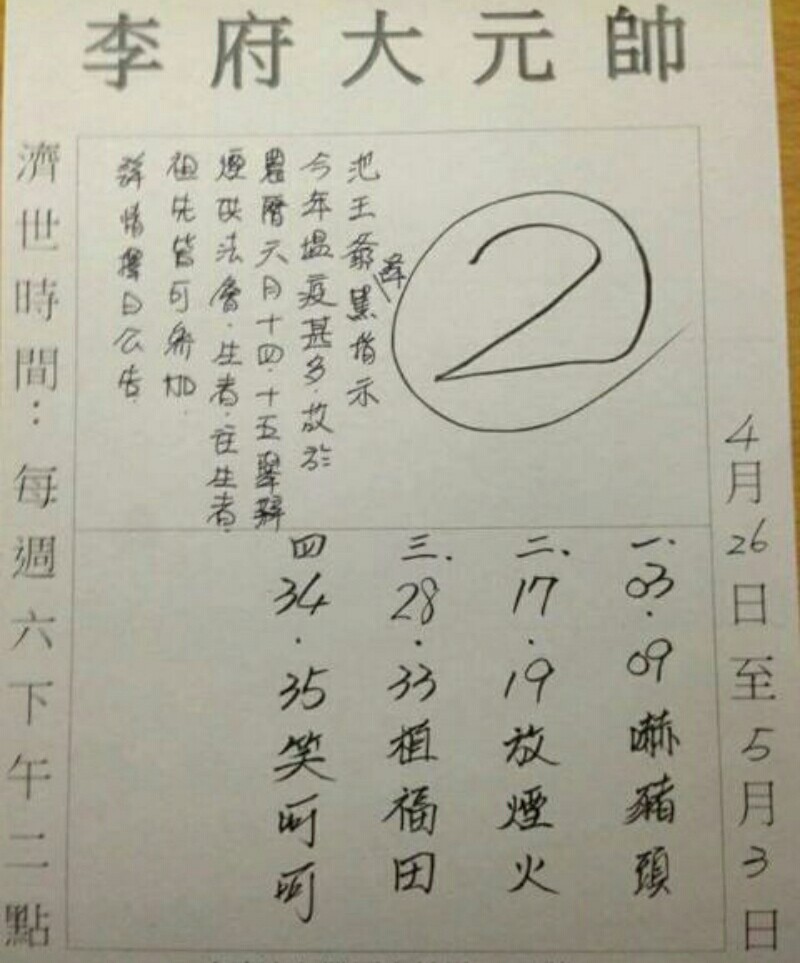 李府大元帥
4月26日至5月3日
2
池王爺 降 黑指示
今年塭疫甚多.故於
農曆六月十四.十五舉辦
煙供法會.生者.往生者.
祖先皆可參加.
詳情擇日公告.
一.03.09嚇豬頭
二、17.19放煙火
三.28.33植福田
四34.35笑呵呵
濟世時間：每週六下午二點